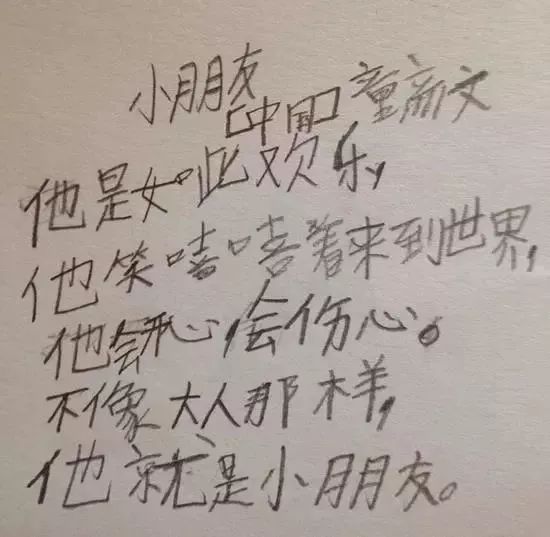 小朋友
[中国] 童 文
他是如此欢乐,
他笑嘻嘻着来到世界,
他会开心,会伤心。
不像大人那样,
他就是小朋友。